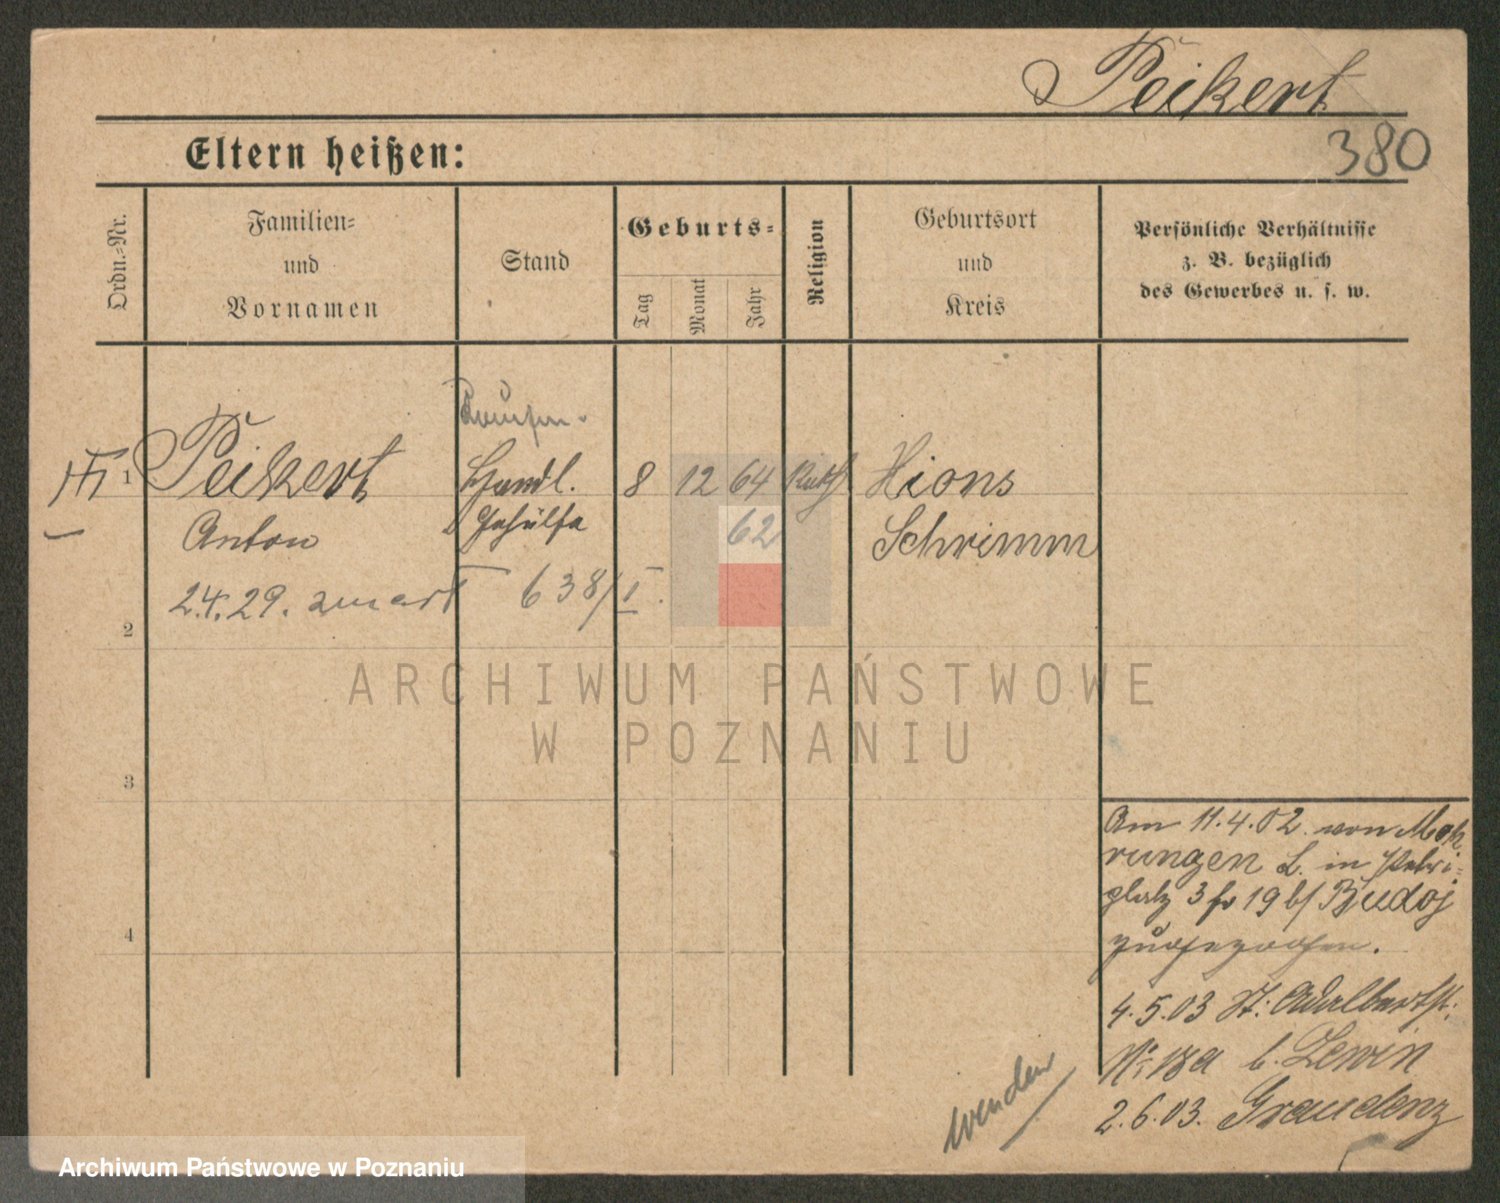 Peikert
380
Eltern heißen:
Ordn.-Nr.
Familien-
und
Vornamen
Stand
Geburts-
Tag
Monat
Jahr
Religion
Geburtsort
und
Kreis
Persönliche Verhältnisse
z. B. bezüglich
des Gewerbes u. s. w.
1 Peikert Handl. 8 12 64 Kath Xions
Anton Gehülfe 62 Schrimm
24.29. zmarł 638/I.
2
3
4
Am 11.4.02. von Moh
rungen L. in Petri-
platz 3 19 b/ Budoj
zugezogen.
4.5.03 St: Adalbertst:
No 18a b. Lewin
2.6.03. Graudenz
wenden
ARCHIWUM PAŃSTWOWE
W POZNANIU
Archiwum Państwowe w Poznaniu